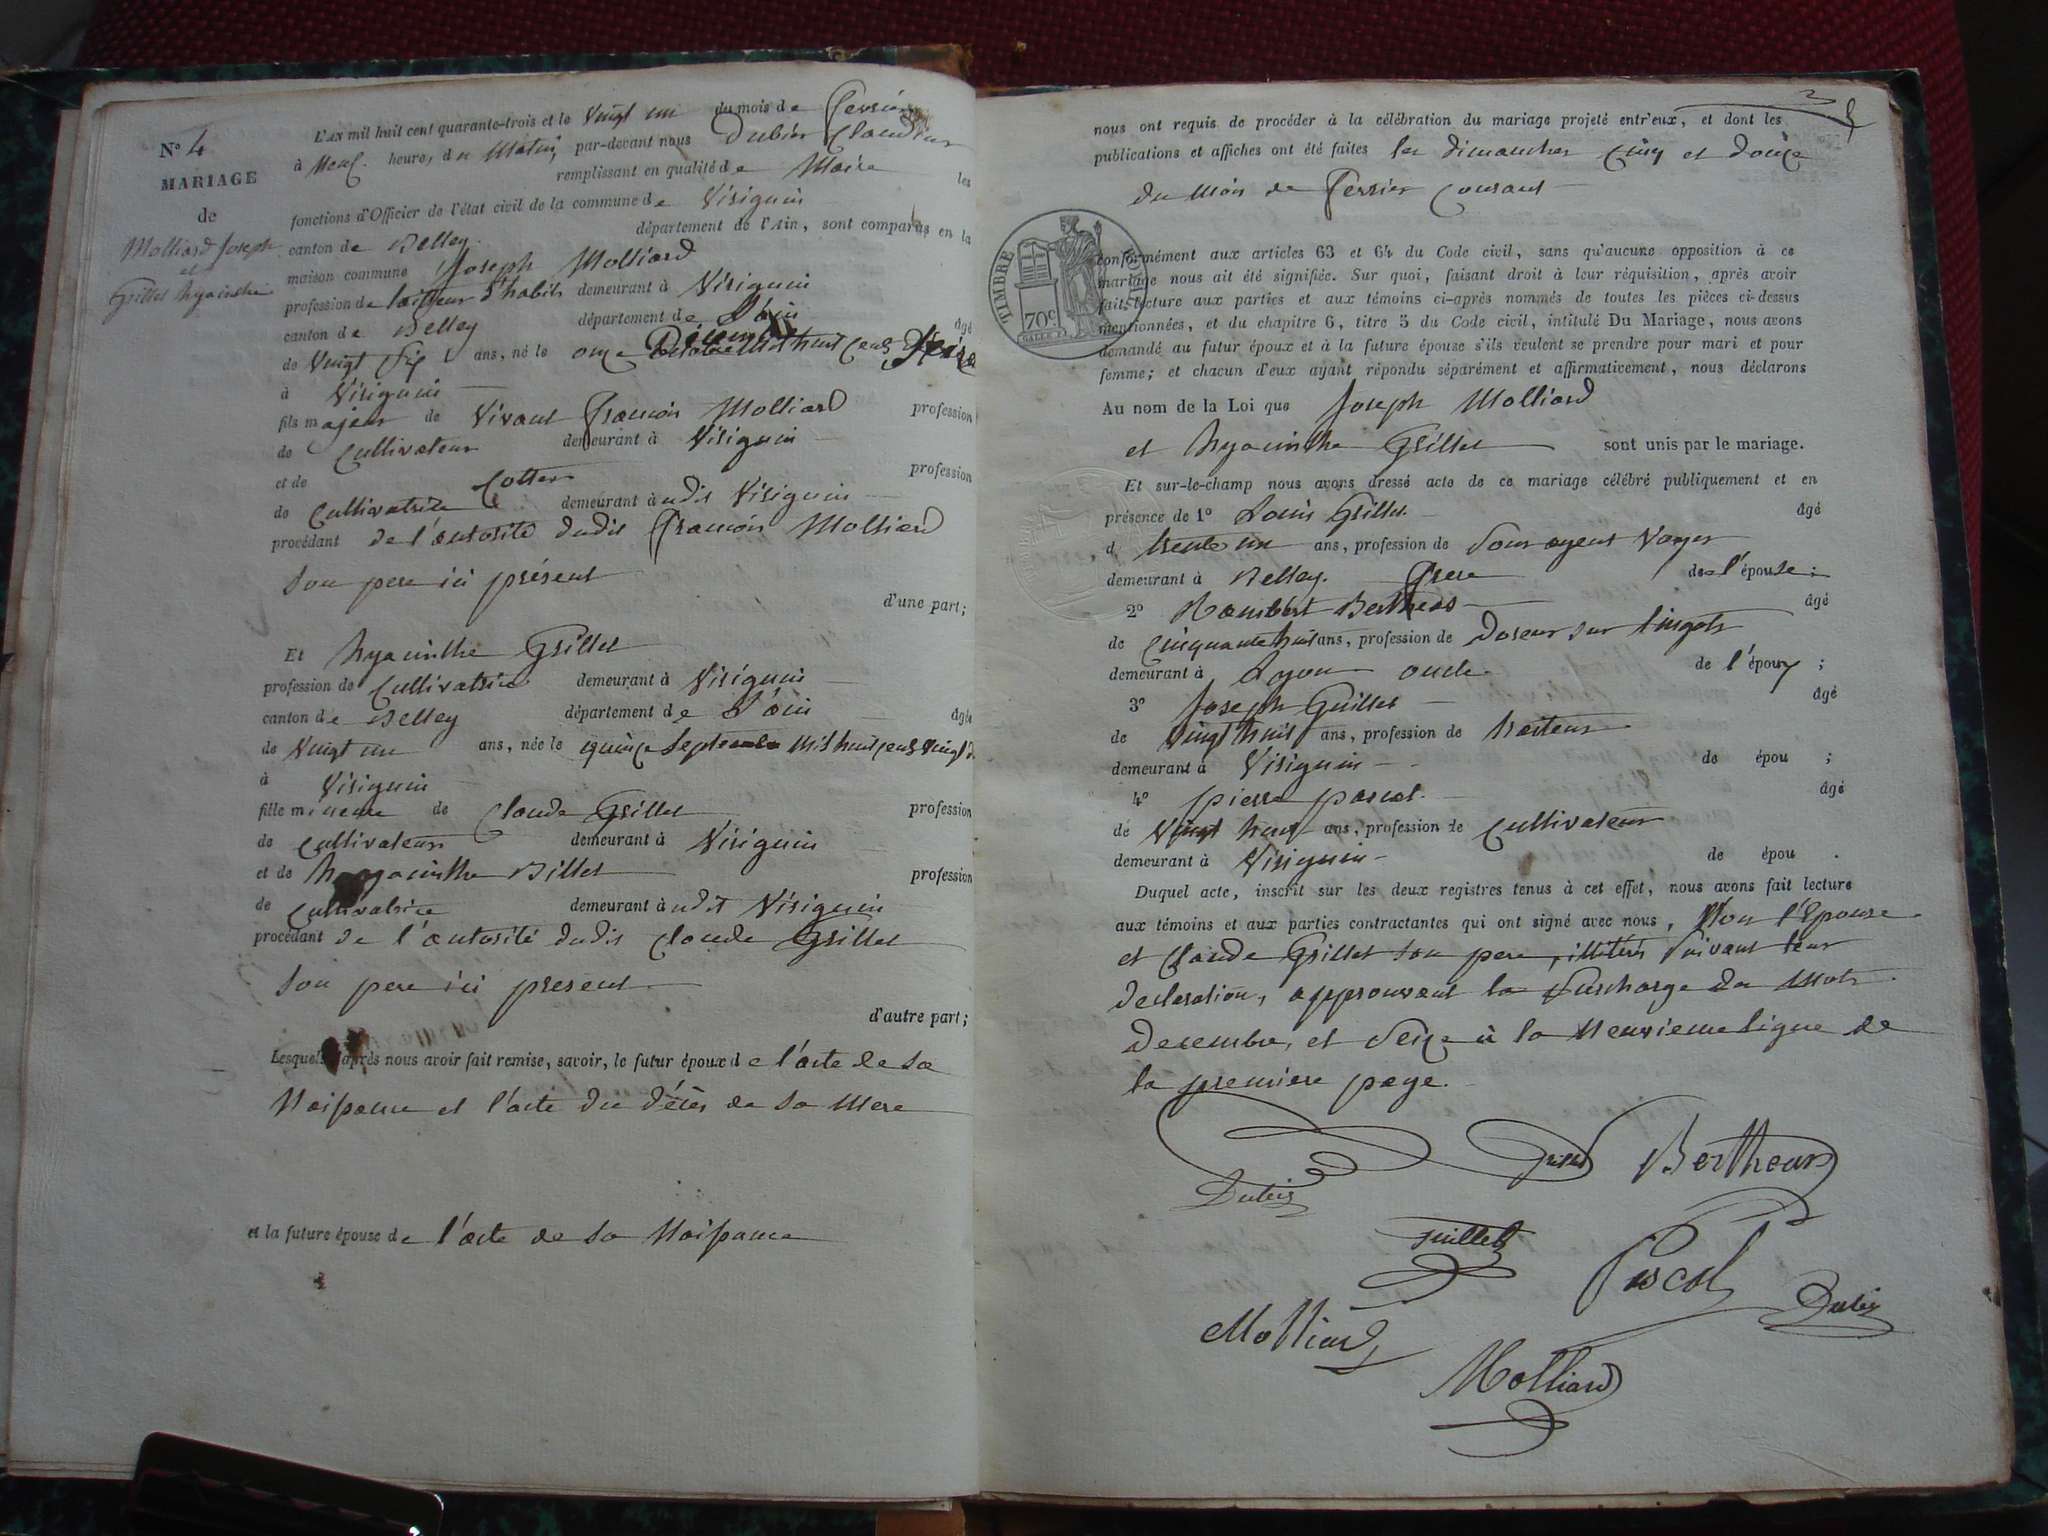 N° 4
MARIAGE
de
Molliard Joseph
et
Grillet hyacinthe
L'AN mil huit cent quarante-trois et le Vingt un du mois de Fevrier
à Neuf heure, du Matin, par-devant nous Dubin Claudius
remplissant en qualité de Maire les
fonctions d'Officier de l'état civil de la commune de Virignin
canton de Belley département de l'Ain, sont comparus en la
maison commune Joseph Molliard
profession de tailleur d'habits demeurant à Virignin
canton de Belley département de L'ain âgé
de Vingt six ans, né le onze Décembre Mil huit Cent Seize
à Virignin
fils majeur de Vivant François Molliard profession
de Cultivateur demeurant à Virignin
et de Cottin profession
de Cultivatrice demeurant à udit Virignin
procédant de l'autorité dudit François Molliard
son pere ici présent
d'une part;
Et hyacinthe Grillet
profession de Cultivatrice demeurant à Virignin
canton de Belley département de L'ain âgée
de Vingt un ans, née le quinze Septembre Mil huit Cent Vingt
à Virignin
fille mineure de Claude Grillet profession
de Cultivateur demeurant à Virignin
et de hyacinthe Billet profession
de Cultivatrice demeurant à udit Virignin
procédant de l'autorité dudit Claude Grillet
son pere ici present
d'autre part;
Lesquels après nous avoir fait remise, savoir, le futur époux de l'acte de sa
Naissance et l'acte du décès de sa Mere
et la future épouse de l'acte de sa Naissance
3
nous ont requis de procéder à la célébration du mariage projeté entr'eux, et dont les
publications et affiches ont été faites les dimanches Cinq et douze
du Mois de Fevrier Courant
TIMBRE ROYAL
70c
conformément aux articles 63 et 64 du Code civil, sans qu'aucune opposition à ce
mariage nous ait été signifiée. Sur quoi, faisant droit à leur réquisition, après avoir
fait lecture aux parties et aux témoins ci-après nommés de toutes les pièces ci-dessus
mentionnées, et du chapitre 6, titre 5 du Code civil, intitulé Du Mariage, nous avons
demandé au futur époux et à la future épouse s'ils veulent se prendre pour mari et pour
femme; et chacun d'eux ayant répondu séparément et affirmativement, nous déclarons
Au nom de la Loi que Joseph Molliard
et hyacinthe Grillet sont unis par le mariage.
Et sur-le-champ nous avons dressé acte de ce mariage célébré publiquement et en
présence de 1° Louis Grillet âgé
d trente un ans, profession de Sous agent Voyer
demeurant à Belley frere de l'épouse;
2° Rambert Bertheas âgé
de Cinquante huit ans, profession de Doreur sur lingots
demeurant à Lyon oncle de l'époux;
3° Joseph Guillet âgé
de Vingt huit ans, profession de traiteur
demeurant à Virignin de épou ;
4° pierre pascal âgé
de Vingt huit ans, profession de Cultivateur
demeurant à Virignin de épou .
Duquel acte, inscrit sur les deux registres tenus à cet effet, nous avons fait lecture
aux témoins et aux parties contractantes qui ont signé avec nous, Non l'Epouse
et Claude Grillet son pere, illitérés suivant leur
declaration, approuvant la Surcharge des Mots
Decembre, et Seize à la Neuvieme ligne de
la premiere page.
Grillet Bertheas
Dubin
Guillet
Pascal
Dubin
Molliard
Molliard